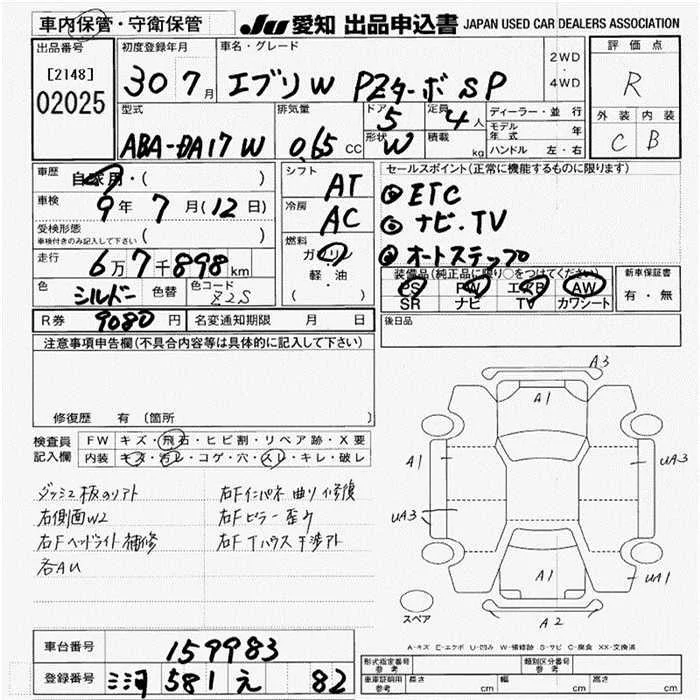 車内保管・守衛保管 JU 愛知 出品申込書 JAPAN USED CAR DEALERS ASSOCIATION
出品番号 [2148] 02025
初度登録年月 30 7月
車名・グレード エブリW PZターボSP
2WD・4WD
評価点 R
外装 内装
C B
型式 ABA-DA17W
排気量 0.65 CC
ドア 5
定員 4人
形状 W
積載 kg
ディーラー・並行
モデル年式 年
ハンドル 左・右
車歴 自家用・( )
車検 9年 7月(12日)
受検形態 車検付きのみ記入して下さい ( )
走行 6万7千898km
色 シルバー 色替 色コード Z2S
シフト AT
冷房 AC
燃料 ガソリン 軽・油 ( )
セールスポイント(正常に機能するものに限ります)
① ETC
② ナビ.TV
③ オートステップ
装備品(純正品に限り○をつけてください)
PS PW エアB AW
SR ナビ TV カワシート
新車保証書 有・無
R券 9080円 名変通知期限 月 日
後日品
注意事項申告欄(不具合内容等は具体的に記入して下さい)
修復歴 有 (箇所 )
検査員記入欄
FW キズ・飛石・ヒビ割・リペア跡・X要
内装 キズ・汚レ・コゲ・穴・スレ・キレ・破レ
右側面W2
右Fヘッドライト補修
各AU
右Fインパネ曲り修復
右Fピラー歪ミ
右FTハウス干渉アト
A3
A1
A1
UA3
UA3
A1
UA1
A2
スペア
A-キズ E-エクボ U-凹み W-補修跡 S-サビ C-腐食 XX-交換済
車台番号 159983
登録番号 三河 581 え 82
形式指定番号 参考 類別区分番号 参考
車庫証明用 参考 長さ cm 幅 cm 高さ cm